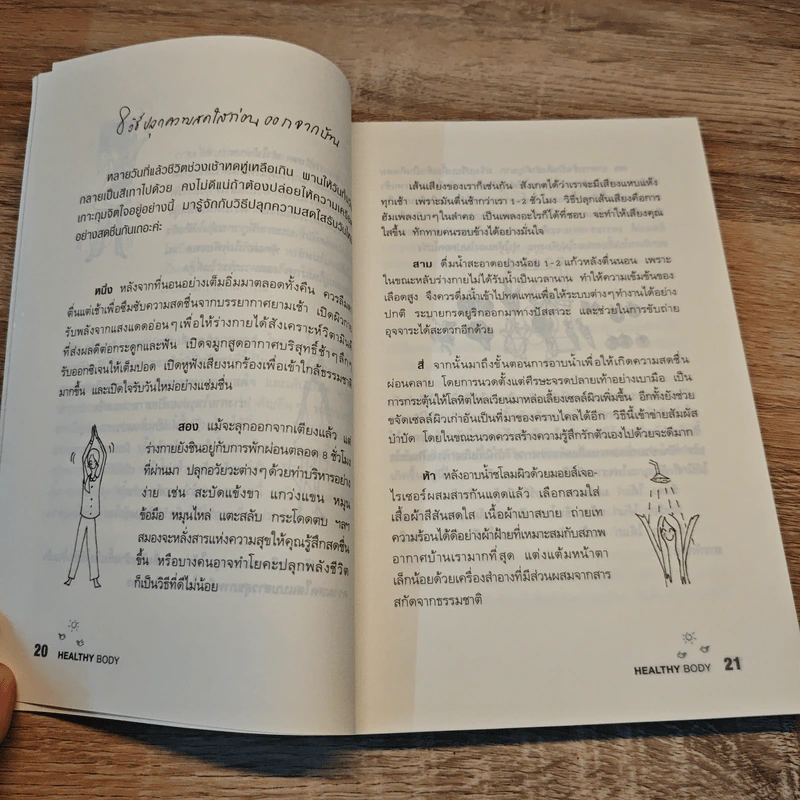 8 วิธีปลุกความสดใสก่อนออกจากบ้าน
หลายวันที่แล้วชีวิตช่วงเช้าหดหู่เหลือเกิน พานให้วันทั้งวัน
กลายเป็นสีเทาไปด้วย คงไม่ดีแน่ถ้าต้องปล่อยให้ความเครียด
เกาะกุมจิตใจอยู่อย่างนี้ มารู้จักกับวิธีปลุกความสดใสรับวันใหม่
อย่างสดชื่นกันเถอะค่ะ
หนึ่ง หลังจากที่นอนอย่างเต็มอิ่มมาตลอดทั้งคืน ควรลืมตา
ตื่นแต่เช้าเพื่อซึมซับความสดชื่นจากบรรยากาศยามเช้า เปิดผิวกาย
รับพลังจากแสงแดดอ่อนๆเพื่อให้ร่างกายได้สังเคราะห์วิตามินดี
ที่ส่งผลดีต่อกระดูกและฟัน เปิดจมูกสูดอากาศบริสุทธิ์ช้าๆลึกๆ
รับออกซิเจนให้เต็มปอด เปิดหูฟังเสียงนกร้องเพื่อเข้าใกล้ธรรมชาติ
มากขึ้น และเปิดใจรับวันใหม่อย่างแช่มชื่น
สอง แม้จะลุกออกจากเตียงแล้ว แต่
ร่างกายยังชินอยู่กับการพักผ่อนตลอด 8 ชั่วโมง
ที่ผ่านมา ปลุกอวัยวะต่างๆด้วยท่าบริหารอย่าง
ง่าย เช่น สะบัดแข้งขา แกว่งแขน หมุน
ข้อมือ หมุนไหล่ แตะสลับ กระโดดตบ ฯลฯ
สมองจะหลั่งสารแห่งความสุขให้คุณรู้สึกสดชื่น
ขึ้น หรือบางคนอาจทำโยคะปลุกพลังชีวิต
ก็เป็นวิธีที่ดีไม่น้อย
20 HEALTHY BODY
เส้นเสียงของเราก็เช่นกัน สังเกตได้ว่าเราจะมีเสียงแหบแห้ง
ทุกเช้า เพราะมันตื่นช้ากว่าเรา 1-2 ชั่วโมง วิธีปลุกเส้นเสียงคือการ
ฮัมเพลงเบาๆในลำคอ เป็นเพลงอะไรก็ได้ที่ชอบ จะทำให้เสียงคุณ
ใสขึ้น ทักทายคนรอบข้างได้อย่างมั่นใจ
สาม ดื่มน้ำสะอาดอย่างน้อย 1-2 แก้วหลังตื่นนอน เพราะ
ในขณะหลับร่างกายไม่ได้รับน้ำเป็นเวลานาน ทำให้ความเข้มข้นของ
เลือดสูง จึงควรดื่มน้ำเข้าไปทดแทนเพื่อให้ระบบต่างๆทำงานได้อย่าง
ปกติ ระบายกรดยูริกออกมาทางปัสสาวะ และช่วยในการขับถ่าย
อุจจาระได้สะดวกอีกด้วย
สี่ จากนั้นมาถึงขั้นตอนการอาบน้ำเพื่อให้เกิดความสดชื่น
ผ่อนคลาย โดยการนวดตั้งแต่ศีรษะจรดปลายเท้าอย่างเบามือ เป็น
การกระตุ้นให้โลหิตไหลเวียนมาหล่อเลี้ยงเซลล์ผิวเพิ่มขึ้น อีกทั้งยังช่วย
ขจัดเซลล์ผิวเก่าอันเป็นที่มาของคราบไคลได้อีก วิธีนี้เข้าข่ายสัมผัส
บำบัด โดยในขณะนวดควรสร้างความรู้สึกรักตัวเองไปด้วยจะดีมาก
ห้า หลังอาบน้ำชโลมผิวด้วยมอยส์เจอ-
ไรเซอร์ผสมสารกันแดดแล้ว เลือกสวมใส่
เสื้อผ้าสีสันสดใส เนื้อผ้าเบาสบาย ถ่ายเท
ความร้อนได้ดีอย่างผ้าฝ้ายที่เหมาะสมกับสภาพ
อากาศบ้านเรามากที่สุด แต่งแต้มหน้าตา
เล็กน้อยด้วยเครื่องสำอางที่มีส่วนผสมจากสาร
สกัดจากธรรมชาติ
HEALTHY BODY 21